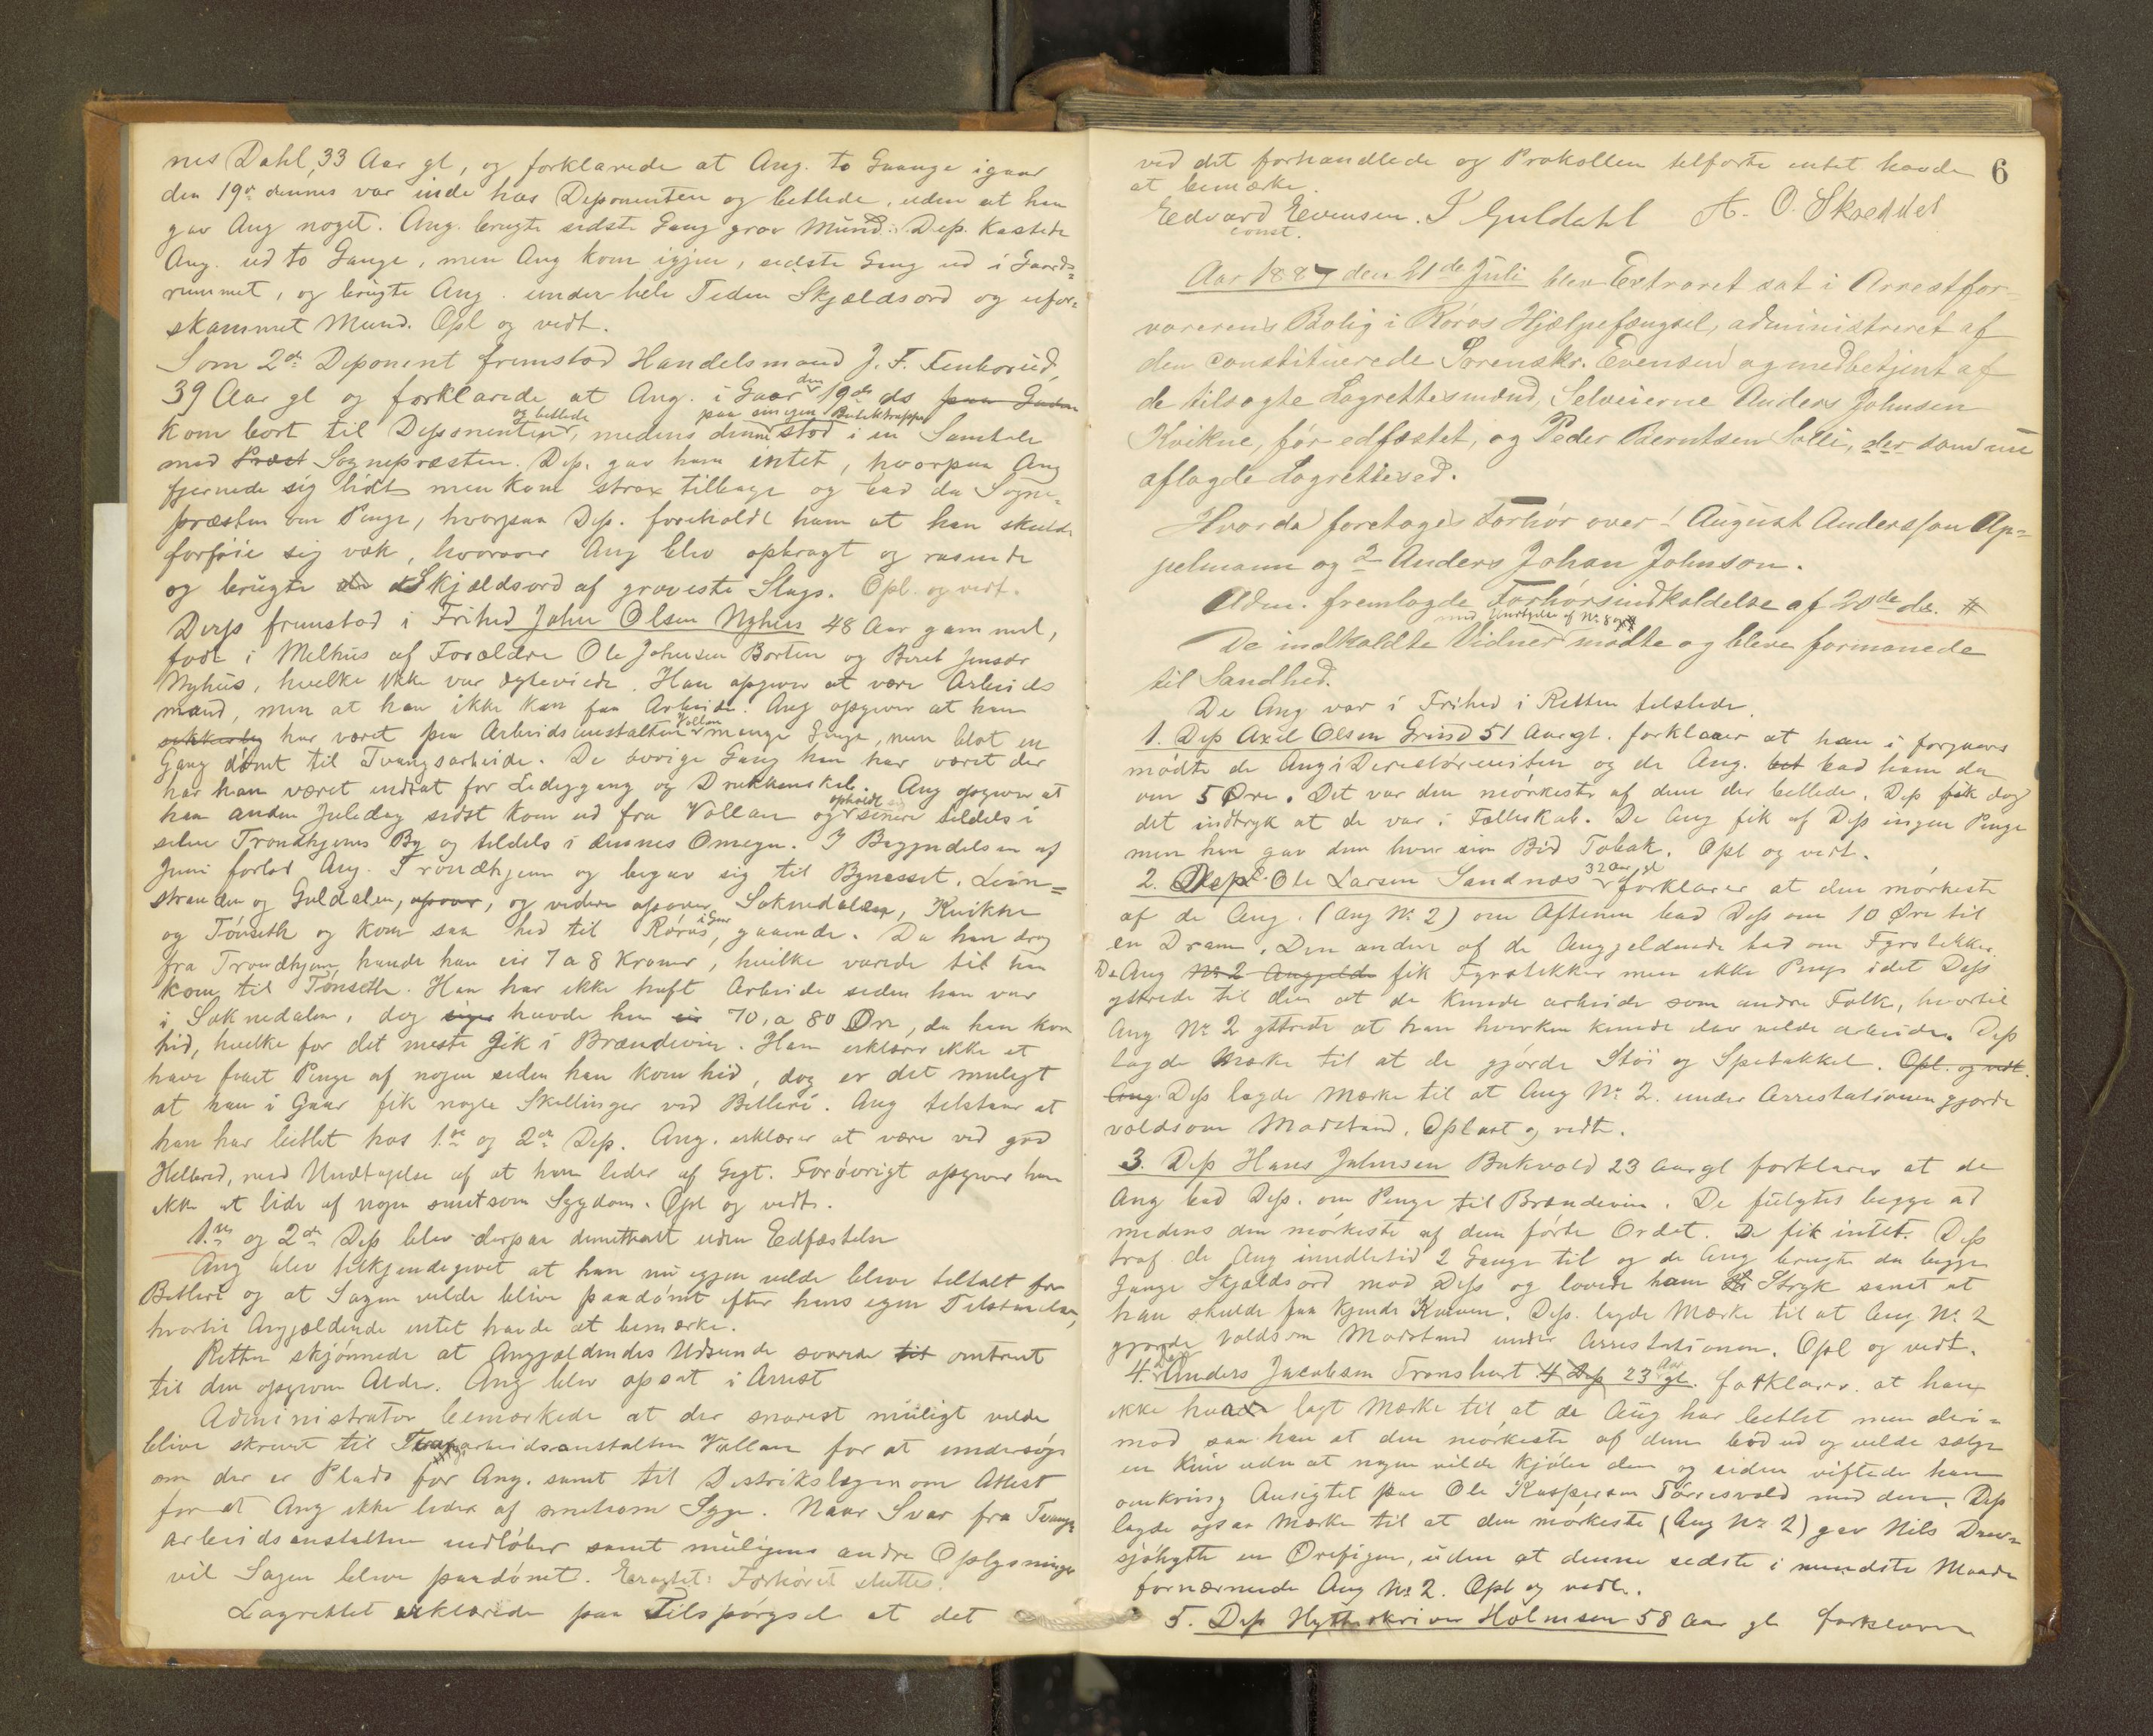 nes Dahl, 33 Aar gl, og forklarede at Ang. to Gange igaar
den 19de dennes var inde hos Deponenten og betlede, uden at han
gav Ang noget. Ang. brugte sidste Gang grov Mund. Dep. kastede
Ang. ud to Gange, men Ang kom igjen, sidste Gang ud i Gaards=
rummet, og brugte Ang. under hele Tiden Skjældsord og ufor=
skammet Mund. Opl og vedt.
Som 2den Deponent fremstod Handelsmand J. F.
39 Aar gl og forklarede at Ang. i Gaar den 19de ds paa Gaden
kom bort til Deponenten og betlede, medens denne paa sin egen Butiktrappe stod i en Samtale
med Præst Sognepræsten. Dep. gav ham intet, hvorpaa Ang
fjernede sig lidt men kom strax tilbage og bad da Sogne=
præsten om Penge, hvorpaa Dep. foreholdt ham at han skulde
forføie sig væk, hvorover Ang blev opbragt og rasende
og brugte Skjældsord af groveste Slags. Opl. og vedt.
Derps fremstod i Frihed John Olsen Nyhus 48 Aar gammel,
født i Melhus af Forældre Ole Johnsen Borten og Beret Jensdr
Nyhus, hvilke ikke var ægteviede. Han opgiver at være Arbeids
mand, men at han ikke kan faa Arbeide. Ang opgiver at han
har været paa Arbeidsanstalten Vollan mange Gange, men blot en
Gang dømt til Tvangsarbeide. De øvrige Gang han har været der
har han været indsat for Lediggang og Drukkenskab. Ang opgiver at
han anden Juledag sidst kom ud fra Vollan og opholdt sig senere tildels i
selve Trondhjems By og tildels i dennes Omegn. I Begyndelsen af
Juni forlod Ang. Trondhjem og begav sig til Bynesset, Lein=
stranden og Guldalen, opover, og videre opover Soknedalen, Kvikne
og Tønseth og kom saa hid til Røros, igaar gaaende. Da han drog
fra Trondhjem, havde han en 7 a 8 Kroner, hvilke varede til han
kom til Tønseth. Han har ikke havt Arbeide siden han var
i Soknedalen, dog havde han en 70, a 80 Øre, da han kom
hid, hvilke for det meste gik i Brændevin. Han erklærer ikke at
have faaet Penge af nogen siden han kom hid, dog er det muligt
at han i Gaar fik nogle Skillinger ved Betleri. Ang tilstaar at
han har betlet hos 1ste og 2den Dep. Ang. erklærer at være ved god
Helbred, med Undtagelse af at han lider af Gigt. Forøvrigt opgiver han
ikke at lide af nogen smitsom Sygdom. Opl og vedt.
1ste og 2den Dep blev derpaa demitteret uden Edfæstelse
Ang blev tilkjendegivet at han nu igjen vilde blive tiltalt for
Betleri og at Sagen vilde blive paadømt efter hans egen Tilstaaelse,
hvortil Angjældende intet havde at bemærke.
Retten skjønnede at Angjældendes Udseende svarede til omtrent
til den opgivne Alder. Ang blev opsat i Arrest
Administrator bemærkede at der snarest muligt vilde
blive skrevet til Tvangsarbeidsanstalten Vollan for at undersøge
om der er Plads for Ang. samt til Distriktslægen om Attest
for at Ang ikke lider af smitsom Syge. Naar Svar fra Tvangs
arbeidsanstalten indløber samt muligens andre Oplysninger
vil Sagen blive paadømt. Forhøret sluttet.
Lagrettet erklærede paa Tilspørgsel at det
6
ved det forhandlede og Protokollen tilførte intet havde
at bemærke.
Edvard Evensen. I Guldahl A. O. Skreddet
const.
Aar 1887 den 21de Juli blev Extraret sat i Arrestfor=
varerens Bolig i Røros Hjælpefængsel, administreret af
den constituerede Sorenskr. Evensen og medbetjent af
de tilsagte Lagrettesmænd, Selveierne Anders Johnsen
Kvikne, før edfæstet, og Peder Berntsen Solli, der som nu
aflagde Lagretteed.
Hvorda foretoges Forhør over 1 August Andersson Ap=
pelmann og 2 Anders Johan Johnson.
Adm. fremlagde Forhørsindkaldelse af 20de ds. #
De indkaldte Vidner med Undtagelse af No 8 mødte og bleve formanede
til Sandhed.
De Ang var i Frihed i Retten tilstede.
1. Dep Axel Olsen Grind 51 Aar gl. forklarer at han i forgaars
mødte de Ang i Direktørveiten og de Ang. bad ham da
om 5 Øre. Det var den mørkeste af dem der betlede. Dep fik dog
det indtryk at de var i Fælleskab. De Ang fik af Dep ingen Penge
men han gav dem hver sin Bid Tobak. Opl og vedt.
2. Dep Ole Larsen Sandnæs 32 Aar gl forklarer at den mørkeste
af de Ang. (Ang No 2) om Aftenen bad Dep om 10 Øre til
en Dram. Den anden af de Angjeldende bad om Fyrstikker.
De Ang No 2 Angjeld fik Fyrstikker men ikke Penge idet Dep
yttrede til dem at de kunde arbeide som andre Folk, hvortil
Ang No 2 yttrede at han hverken kunde eller vilde arbeide. Dep
lagde Mærke til at de gjorde Støi og Spetakkel. Opl. og vedt.
Ang. Dep lagde Mærke til at Ang No 2. under Arrestationen gjorde
voldsom Modstand. Oplæst og vedt.
3. Dep Hans Johnsen Bukvold 23 Aar gl forklarer at de
Ang bad Dep. om Penge til Brændevin. De fulgtes begge ad
medens den mørkeste af dem førte Ordet. De fik intet. Dep
traf de Ang imidlertid 2 Gange til og de Ang brugte da begge
Gange Skjældsord mod Dep og lovede ham Stryk samt at
han skulde faa kjende Kniven. Dep. lagde Mærke til at Ang No 2
gjorde voldsom Modstand under Arrestationen. Opl og vedt.
4. Dep Anders Jacobsen Tronshart 4 Dep 23 Aar gl. forklarer. at han
ikke lagt Mærke til at de Ang har betlet men deri=
mod saa han at den mørkeste af dem bød ud og vilde sælge
en Kniv uden at nogen vilde kjøbe den og siden viftede han
omkring Ansigtet paa Ole Kaspersen Tørresvold med den. Dep
lagde ogsaa Mærke til at den mørkeste (Ang No 2) gav Nils
sjøhytte en Ørefigen, uden at denne sidste i mindste Maade
fornærmede Ang No 2. Opl og vedt.
5. Dep Hytteskriver Holmsen 58 Aar gl forklarer